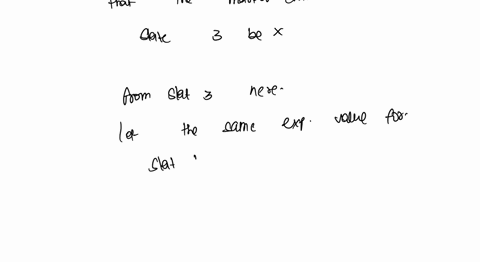 that the
state 3 be x
from stat 3 here.
let the same exp. value for.
stat